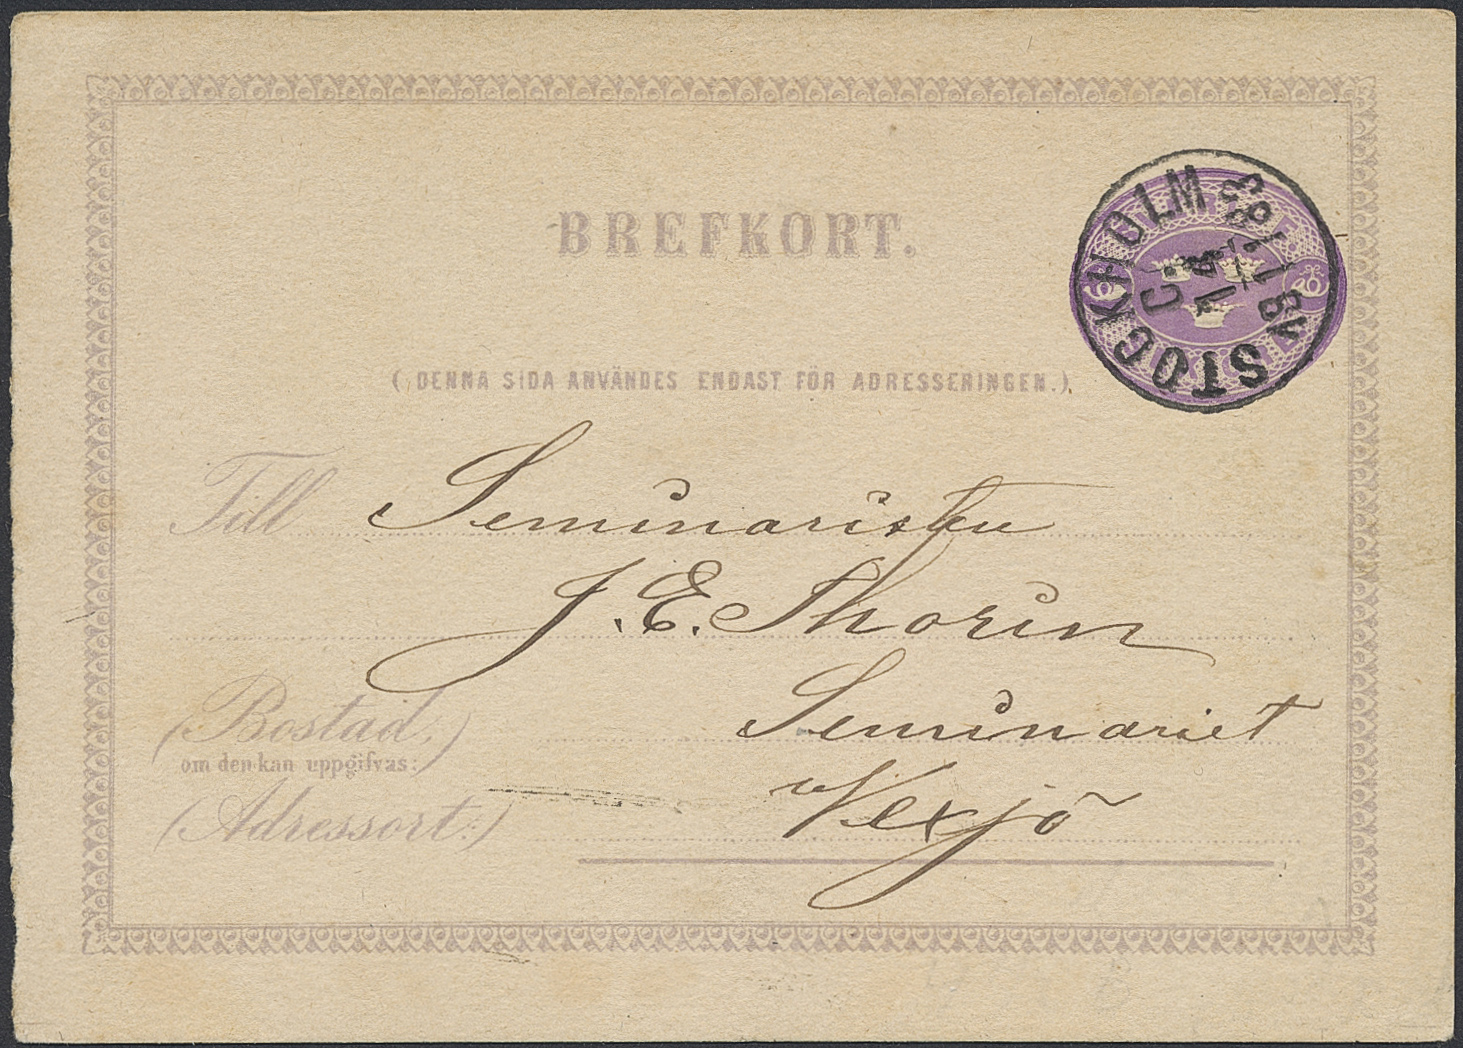 BREFKORT.
STOCKHOLM
C.
14
1
1883
(DENNA SIDA ANVÄNDES ENDAST FÖR ADRESSERINGEN.)
Till Seminaristen
J. E. Thorin
(Bostad) Seminariet
om den kan uppgifvas:
(Adressort:) Vexjö